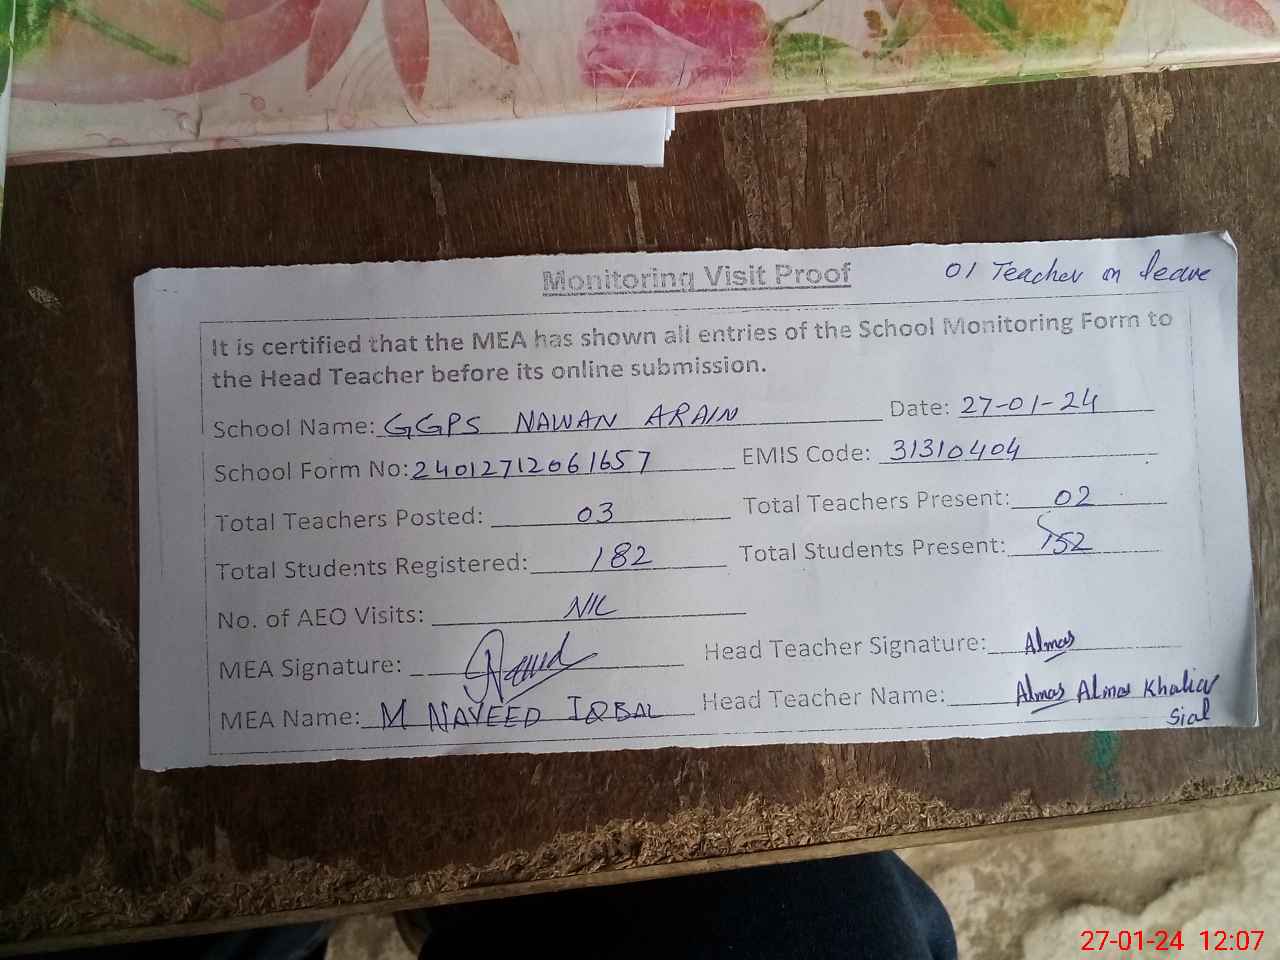 Monitoring Visit Proof
01 Teacher on leave
It is certified that the MEA has shown all entries of the School Monitoring Form to
the Head Teacher before its online submission.
School Name: GGPS NAWAN ARAIN Date: 27-01-24
School Form No: 24012712061657 EMIS Code: 31310404
Total Teachers Posted: 03 Total Teachers Present: 02
Total Students Registered: 182 Total Students Present: 152
No. of AEO Visits: NIL
MEA Signature: Head Teacher Signature: Almas
MEA Name: M NAVEED IQBAL Head Teacher Name: Almas Almas
Sial
27-01-24 12:07